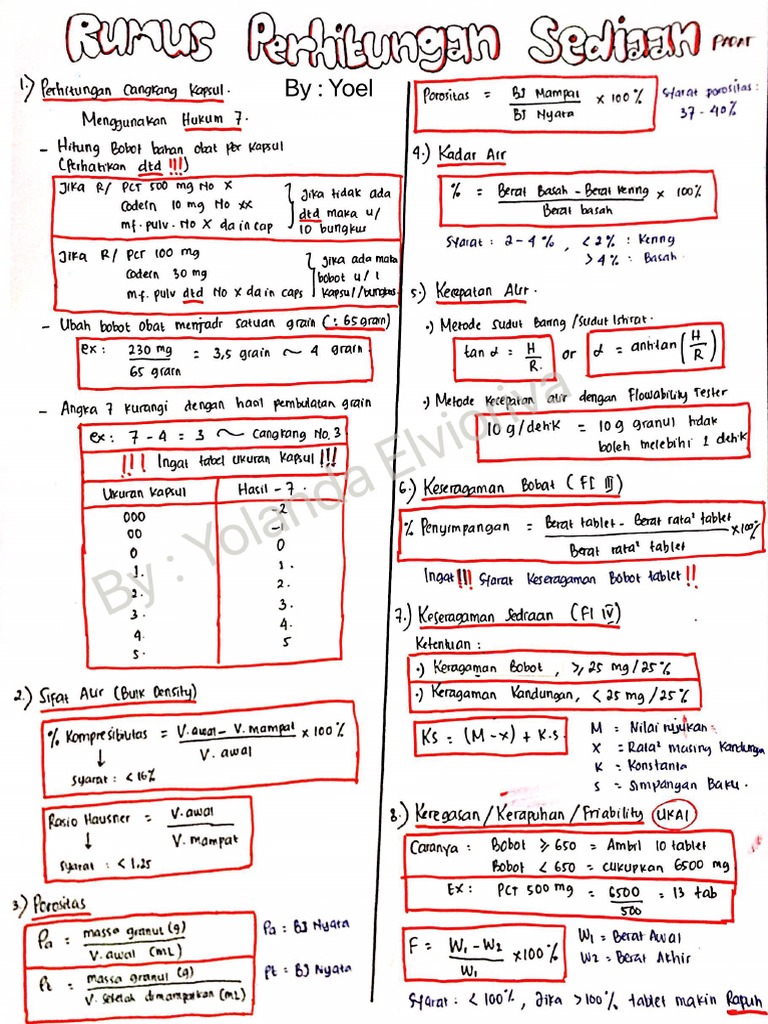 Rumus Perhitungan Sediaan PADAT
By : Yoel
1.) Perhitungan Cangkang Kapsul.
Menggunakan Hukum 7.
- Hitung Bobot bahan obat per kapsul
(Perhatikan dtd !!!)
Jika R/ PCT 500 mg No X
Codein 10 mg No XX
mf. pulv. No X da in cap
Jika tidak ada
dtd maka u/
10 bungkus
Jika R/ PCT 100 mg
Codein 30 mg
mf. pulv dtd No X da in caps
Jika ada maka
bobot u/ 1
Kapsul/bungkus
- Ubah bobot obat menjadi satuan grain (: 65 grain)
ex: 230 mg / 65 grain = 3,5 grain ~ 4 grain.
- Angka 7 kurangi dengan hasil pembulatan grain
ex: 7 - 4 = 3 ~ Cangkang No. 3
!!! Ingat tabel Ukuran Kapsul !!!
Ukuran Kapsul Hasil - 7.
000 -2
00 -1
0 0
1. 1.
2. 2.
3. 3.
4. 4.
5. 5
2.) Sifat Alir (Bulk Density)
% Kompresibilitas = V. awal - V. mampat / V. awal x 100%
Syarat : < 16%
Rasio Hausner = V. awal / V. mampat
Syarat : < 1.25
3.) Porositas
Pa = massa granul (g) / V. awal (mL)
Pa : BJ Nyata
Pt = massa granul (g) / V. setelah dimampatkan (mL)
Pt = BJ Nyata
Porositas = BJ Mampat / BJ Nyata x 100%
Syarat porositas :
37 - 40%
4.) Kadar Air
% = Berat Basah - Berat Kering / Berat basah x 100%
Syarat : 2 - 4 %, < 2% : Kering
> 4% : Basah.
5.) Kecepatan Alir.
•) Metode Sudut Baring / Sudut Istirat.
tan α = H / R. or α = antitan (H / R)
•) Metode Kecepatan alir dengan Flowability Tester
10 g/detik = 10 g granul tidak
boleh melebihi 1 detik
6.) Keseragaman Bobot (FI III)
% Penyimpangan = Berat tablet - Berat rata² tablet / Berat rata² tablet x 100%
Ingat !!! Syarat Keseragaman Bobot tablet !!
7.) Keseragaman Sediaan (FI IV)
Ketentuan :
•) Keragaman Bobot, ≥ 25 mg / 25 %
•) Keragaman Kandungan, < 25 mg / 25%
Ks = (M - x) + K.s
M = Nilai rujukan
X = Rata² masing Kandungan
K = Konstanta
S = Simpangan Baku.
8.) Keregasan / Kerapuhan / Friability (UKAI)
Caranya : Bobot ≥ 650 = Ambil 10 tablet
Bobot < 650 = cukupkan 6500 mg
Ex : PCT 500 mg = 6500 / 500 = 13 tab
F = W1 - W2 / W1 x 100%
W1 = Berat Awal
W2 = Berat Akhir
Syarat : < 100%, Jika > 100% tablet makin Rapuh
By : Yolanda Elvioriva